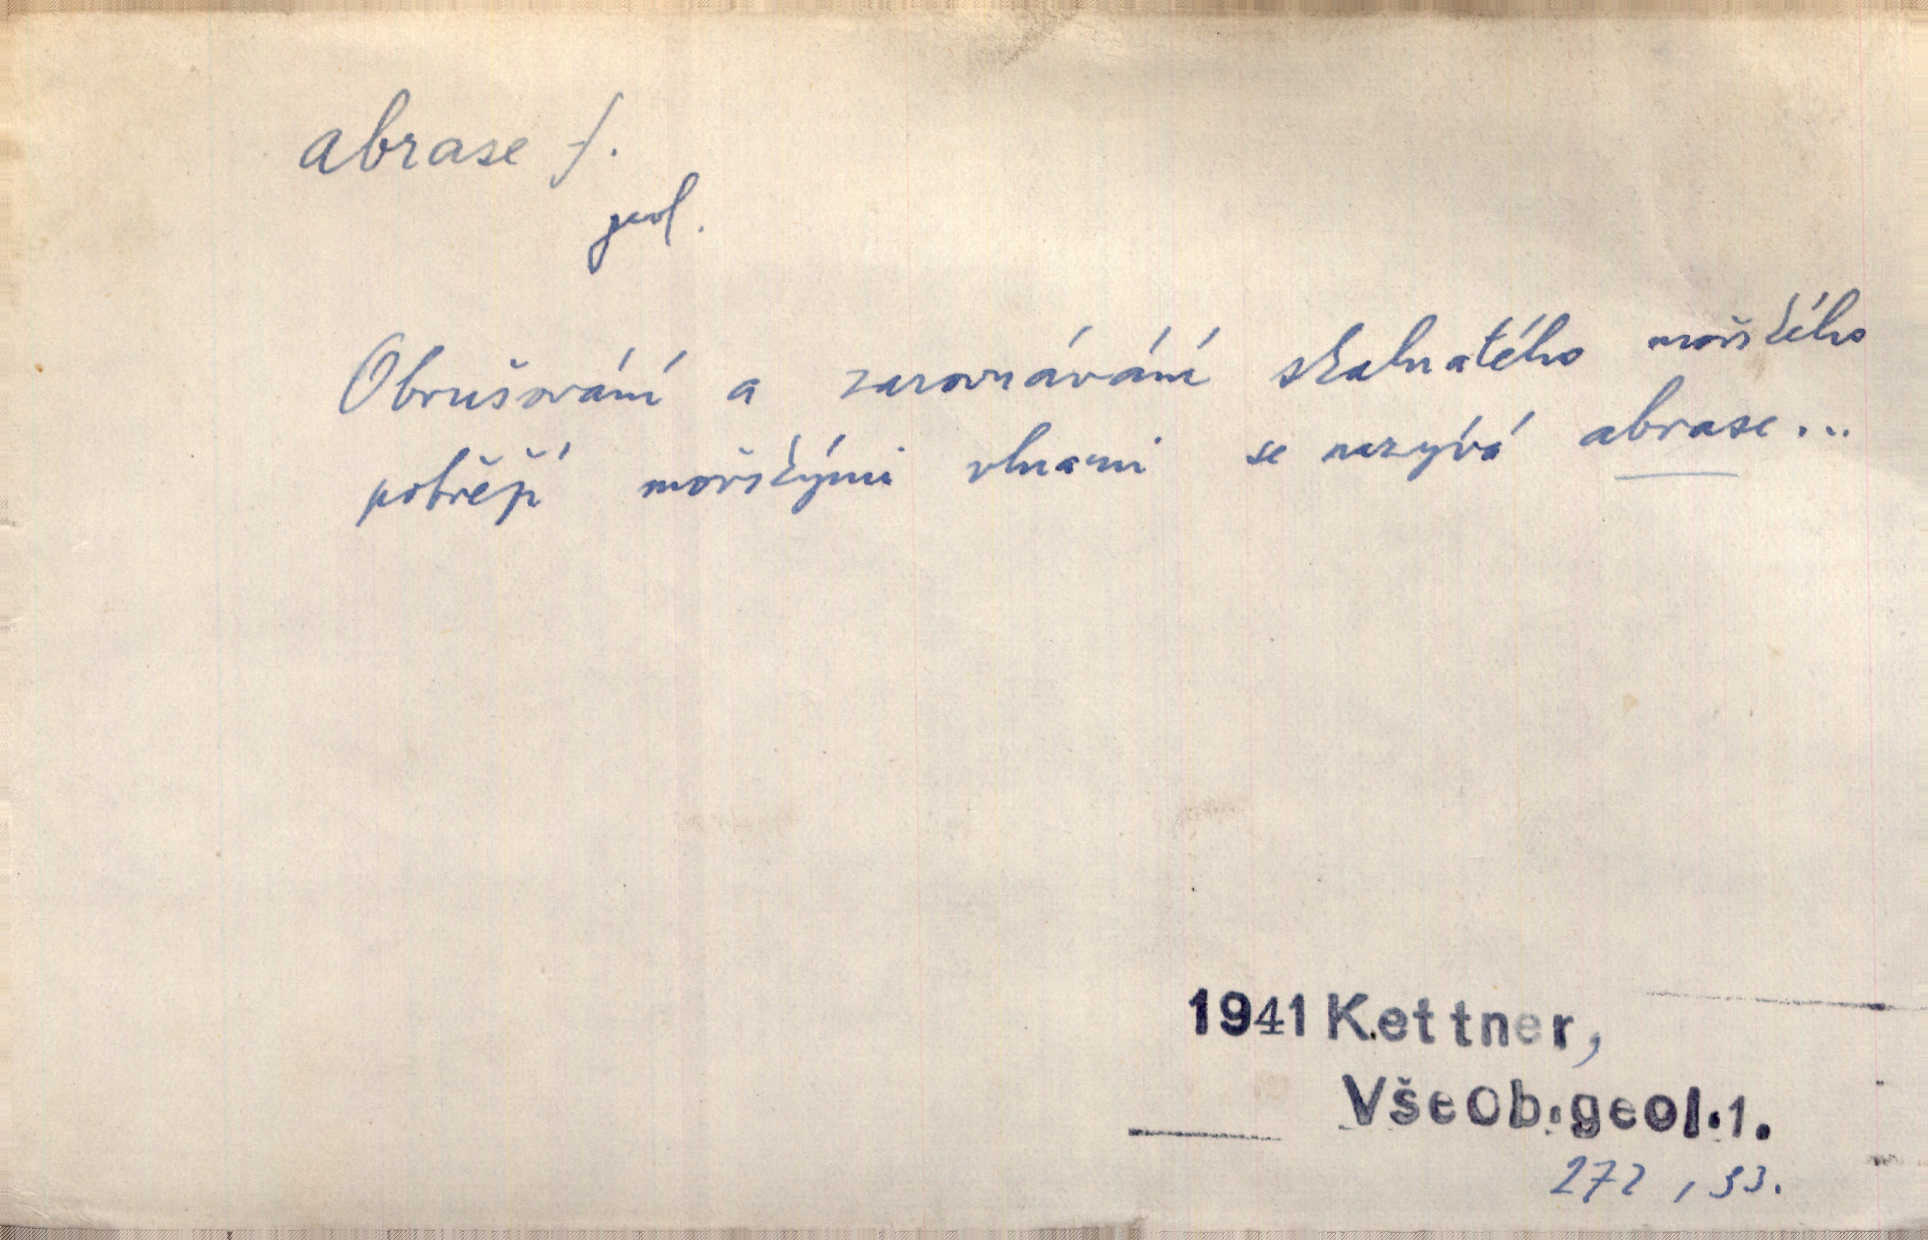 abrase f.
geol.
Obrušování a zarovnávání skalnatého mořského
pobřěží mořskými vlnami se nazývá abrase...
1941 Kettner,
Všeob.geol.1.
272, 33.